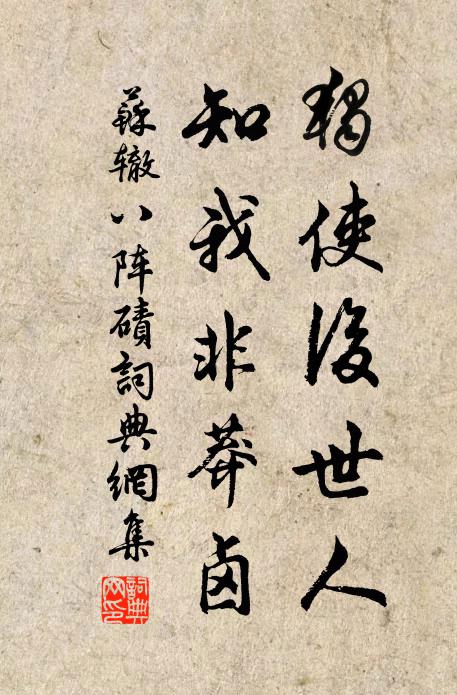 獨使後世人
知我非莽鹵
蘇轍八阵磧詞典網集
詞典
网印